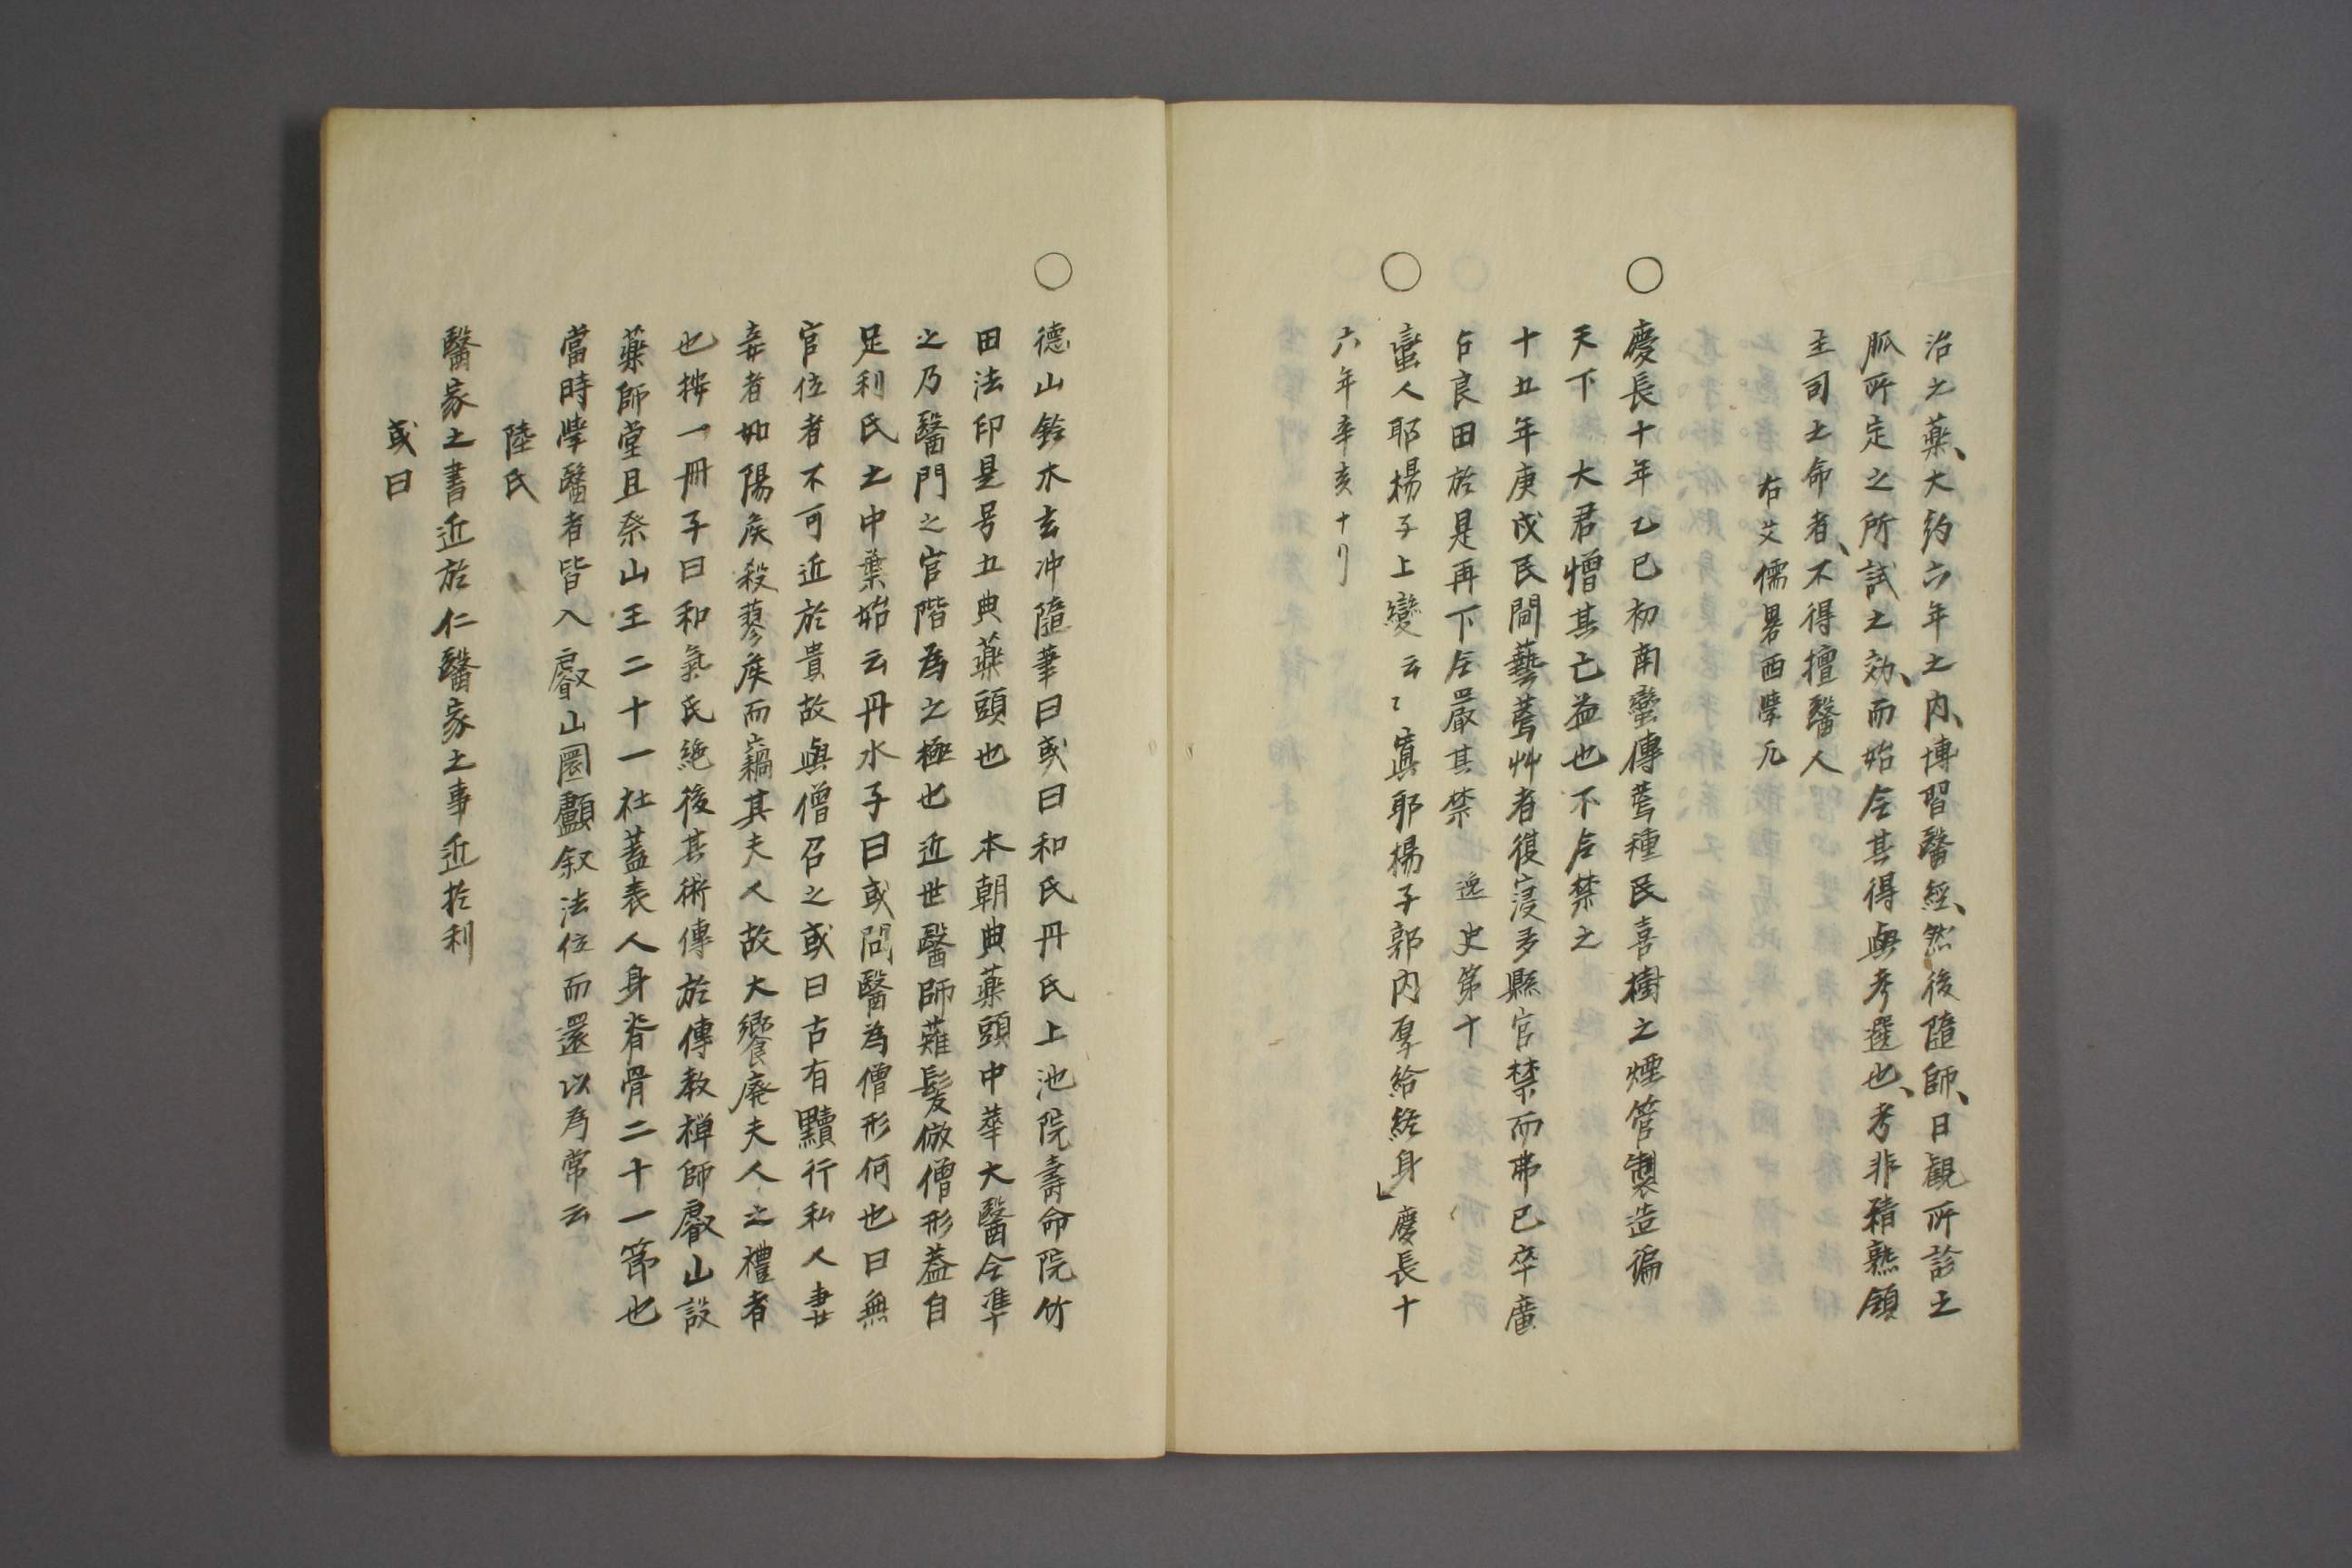 治之藥、大約六年之内、博習醫經、然後隨師、日觀所診之
脈所定之所試之効、而始令其得與考選也、考非精熟領
主司之命者、不得擅醫人
右艾儒畧西學凡
○慶長十年乙巳初南蠻傳蔫種民喜樹之煙管製造徧
天下　大君憎其亡益也不令禁之
十五年庚戌民間藝蔫艸者復寖多縣官禁而弗已卒廣
占良田於是再下令嚴其禁　逸史第十
○蠻人耶楊子上變云々眞耶楊子郭内厚給終身」慶長十
六年辛亥十月
○德山鈴木玄冲隨筆曰或曰和氏丹氏上池院壽命院竹
田法印是号五典藥頭也　本朝典藥頭中華大醫令準
之乃醫門之官階為之極也近世醫師薙髮倣僧形蓋自
足利氏之中葉始云丹水子曰或問醫為僧形何也曰無
官位者不可近於貴故與僧召之或曰古有黷行私人妻
妾者如陽矦殺蓼矦而竊其夫人故大饗廢夫人之禮者
也按一冊子曰和氣氏絶後其術傳於傳教禅師叡山設
藥師堂且祭山王二十一社蓋表人身脊骨二十一節也
當時學醫者皆入叡山圂顱叙法位而還以為常云
陸氏
醫家之書近於仁醫家之事近於利
或曰